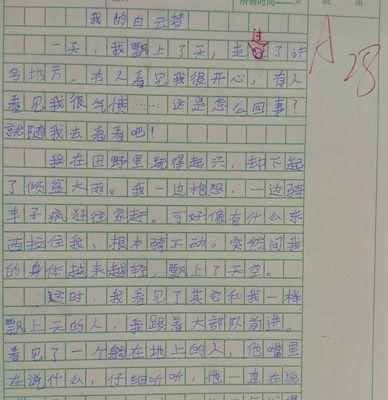 所需时间
我的白云梦
一天，我飘上了天，走过了许
多地方。有人看见我很开心，有人
看见我很气愤……这是怎么回事？
就随我去看看吧！
我在田野里玩得起兴，却下起
了倾盆大雨。我一边抱怨，一边骑
车子疯狂往家赶。可好像有什么东
西拉住我，根本骑不动。突然间我
的身体越来越轻，飘上了天空。
这时，我看见了其它和我一样
飘上天的人。我跟着大部队前进。
看见了一个躺在地上的人，他嘴里
在说什么，仔细听听，他一直在说
A
28